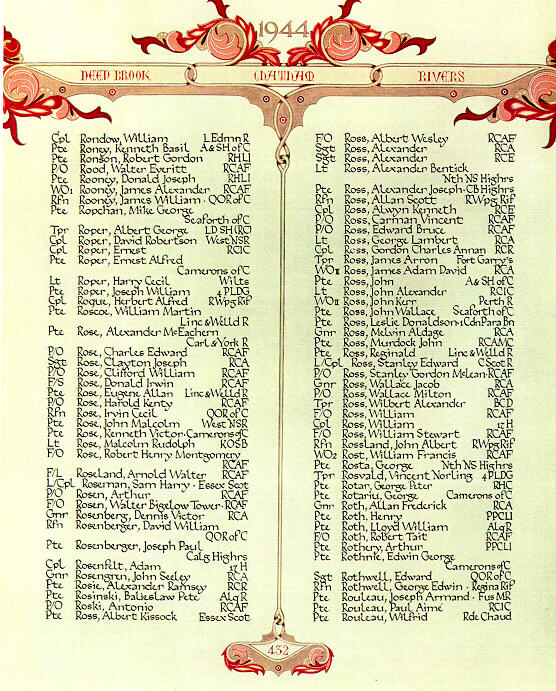 1944
DEEP BROOK CHATHAM RIVERS
Cpl Rondow, William L Edmn R
Pte Roney, Kenneth Basil A & SH of C
Pte Ronson, Robert Gordon RHLI
P/O Rood, Walter Everitt RCAF
Pte Rooney, Donald Joseph RHLI
WO1 Rooney, James Alexander RCAF
Rfn Rooney, James William · QOR of C
Pte Ropchan, Mike George
Seaforth of C
Tpr Roper, Albert George LD SH (RC)
Cpl Roper, David Robertson West NSR
Cpl Roper, Ernest RCIC
Pte Roper, Ernest Alfred
Camerons of C
Lt Roper, Harry Cecil Wilts
Pte Roper, Joseph William 4 PLDG
Cpl Roque, Herbert Alfred RWpg Rif
Pte Roscoe, William Martin
Linc & Welld R
Pte Rose, Alexander McEachern
Carl & York R
P/O Rose, Charles Edward RCAF
Sgt Rose, Clayton Joseph RCA
P/O Rose, Clifford William RCAF
F/S Rose, Donald Irwin RCAF
Pte Rose, Eugene Allan Linc & Welld R
P/O Rose, Harold Kenty RCAF
Rfn Rose, Irvin Cecil QOR of C
Pte Rose, John Malcolm West NSR
Pte Rose, Kenneth Victor · Camerons of C
Lt Rose, Malcolm Rudolph KOSB
F/O Rose, Robert Henry Montgomery
RCAF
F/L Roseland, Arnold Walter RCAF
L/Cpl Roseman, Sam Harry · Essex Scot
P/O Rosen, Arthur RCAF
F/O Rosen, Walter Bigelow Tower · RCAF
Gnr Rosenberg, Dennis Victor RCA
Rfn Rosenberger, David William
QOR of C
Pte Rosenberger, Joseph Paul
Calg Highrs
Cpl Rosenfelt, Adam 17 H
Gnr Rosengren, John Seeley RCA
Pte Rosie, Alexander Ramsey RCR
Pte Rosinski, Balieslaw Pete Alq R
P/O Roski, Antonio RCAF
Pte Ross, Albert Kissock Essex Scot
F/O Ross, Albert Wesley RCAF
Sgt Ross, Alexander RCA
Sgt Ross, Alexander RCE
Lt Ross, Alexander Bentick
Nth NS Highrs
Pte Ross, Alexander Joseph · CB Highrs
Rfn Ross, Allan Scott RWpg Rif
Cpl Ross, Alwyn Kenneth RCE
P/O Ross, Carman Vincent RCAF
P/O Ross, Edward Bruce RCAF
Lt Ross, George Lambert RCA
Cpl Ross, Gordon Charles Annan RCR
Tpr Ross, James Arron Fort Garry's
WO II Ross, James Adam David RCA
Pte Ross, John A & SH of C
Lt Ross, John Alexander RCIC
WO II Ross, John Kerr Perth R
Pte Ross, John Wallace Seaforth of C
Pte Ross, Leslie Donaldson · 1 Cdn Para Bn
Gnr Ross, Melvin Aldage RCA
Pte Ross, Murdock John RCAMC
Pte Ross, Reginald Linc & Welld R
L/Cpl Ross, Stanley Edward C Scot R
P/O Ross, Stanley Gordon McLean · RCAF
Gnr Ross, Wallace Jacob RCA
P/O Ross, Wallace Milton RCAF
Tpr Ross, Wilbert Alexander BCD
F/O Ross, William RCAF
Cpl Ross, William 17 H
F/O Ross, William Stewart RCAF
Rfn Rossland, John Albert RWpg Rif
WO2 Rost, William Francis RCAF
Pte Rosta, George Nth NS Highrs
Tpr Rosvald, Vincent Norling 4 PLDG
Pte Rotar, George Peter RHC
Pte Rotariu, George Camerons of C
Gnr Roth, Allan Frederick RCA
Pte Roth, Henry PPCLI
Pte Roth, Lloyd William Alq R
F/O Roth, Robert Tait RCAF
Pte Rothery, Arthur PPCLI
Pte Rothnie, Edwin George
Camerons of C
Sgt Rothwell, Edward QOR of C
Rfn Rothwell, George Edwin · Regina Rif
Pte Rouleau, Joseph Armand · Fus MR
Pte Rouleau, Paul Aimé RCIC
Pte Rouleau, Wilfrid R de Chaud
432